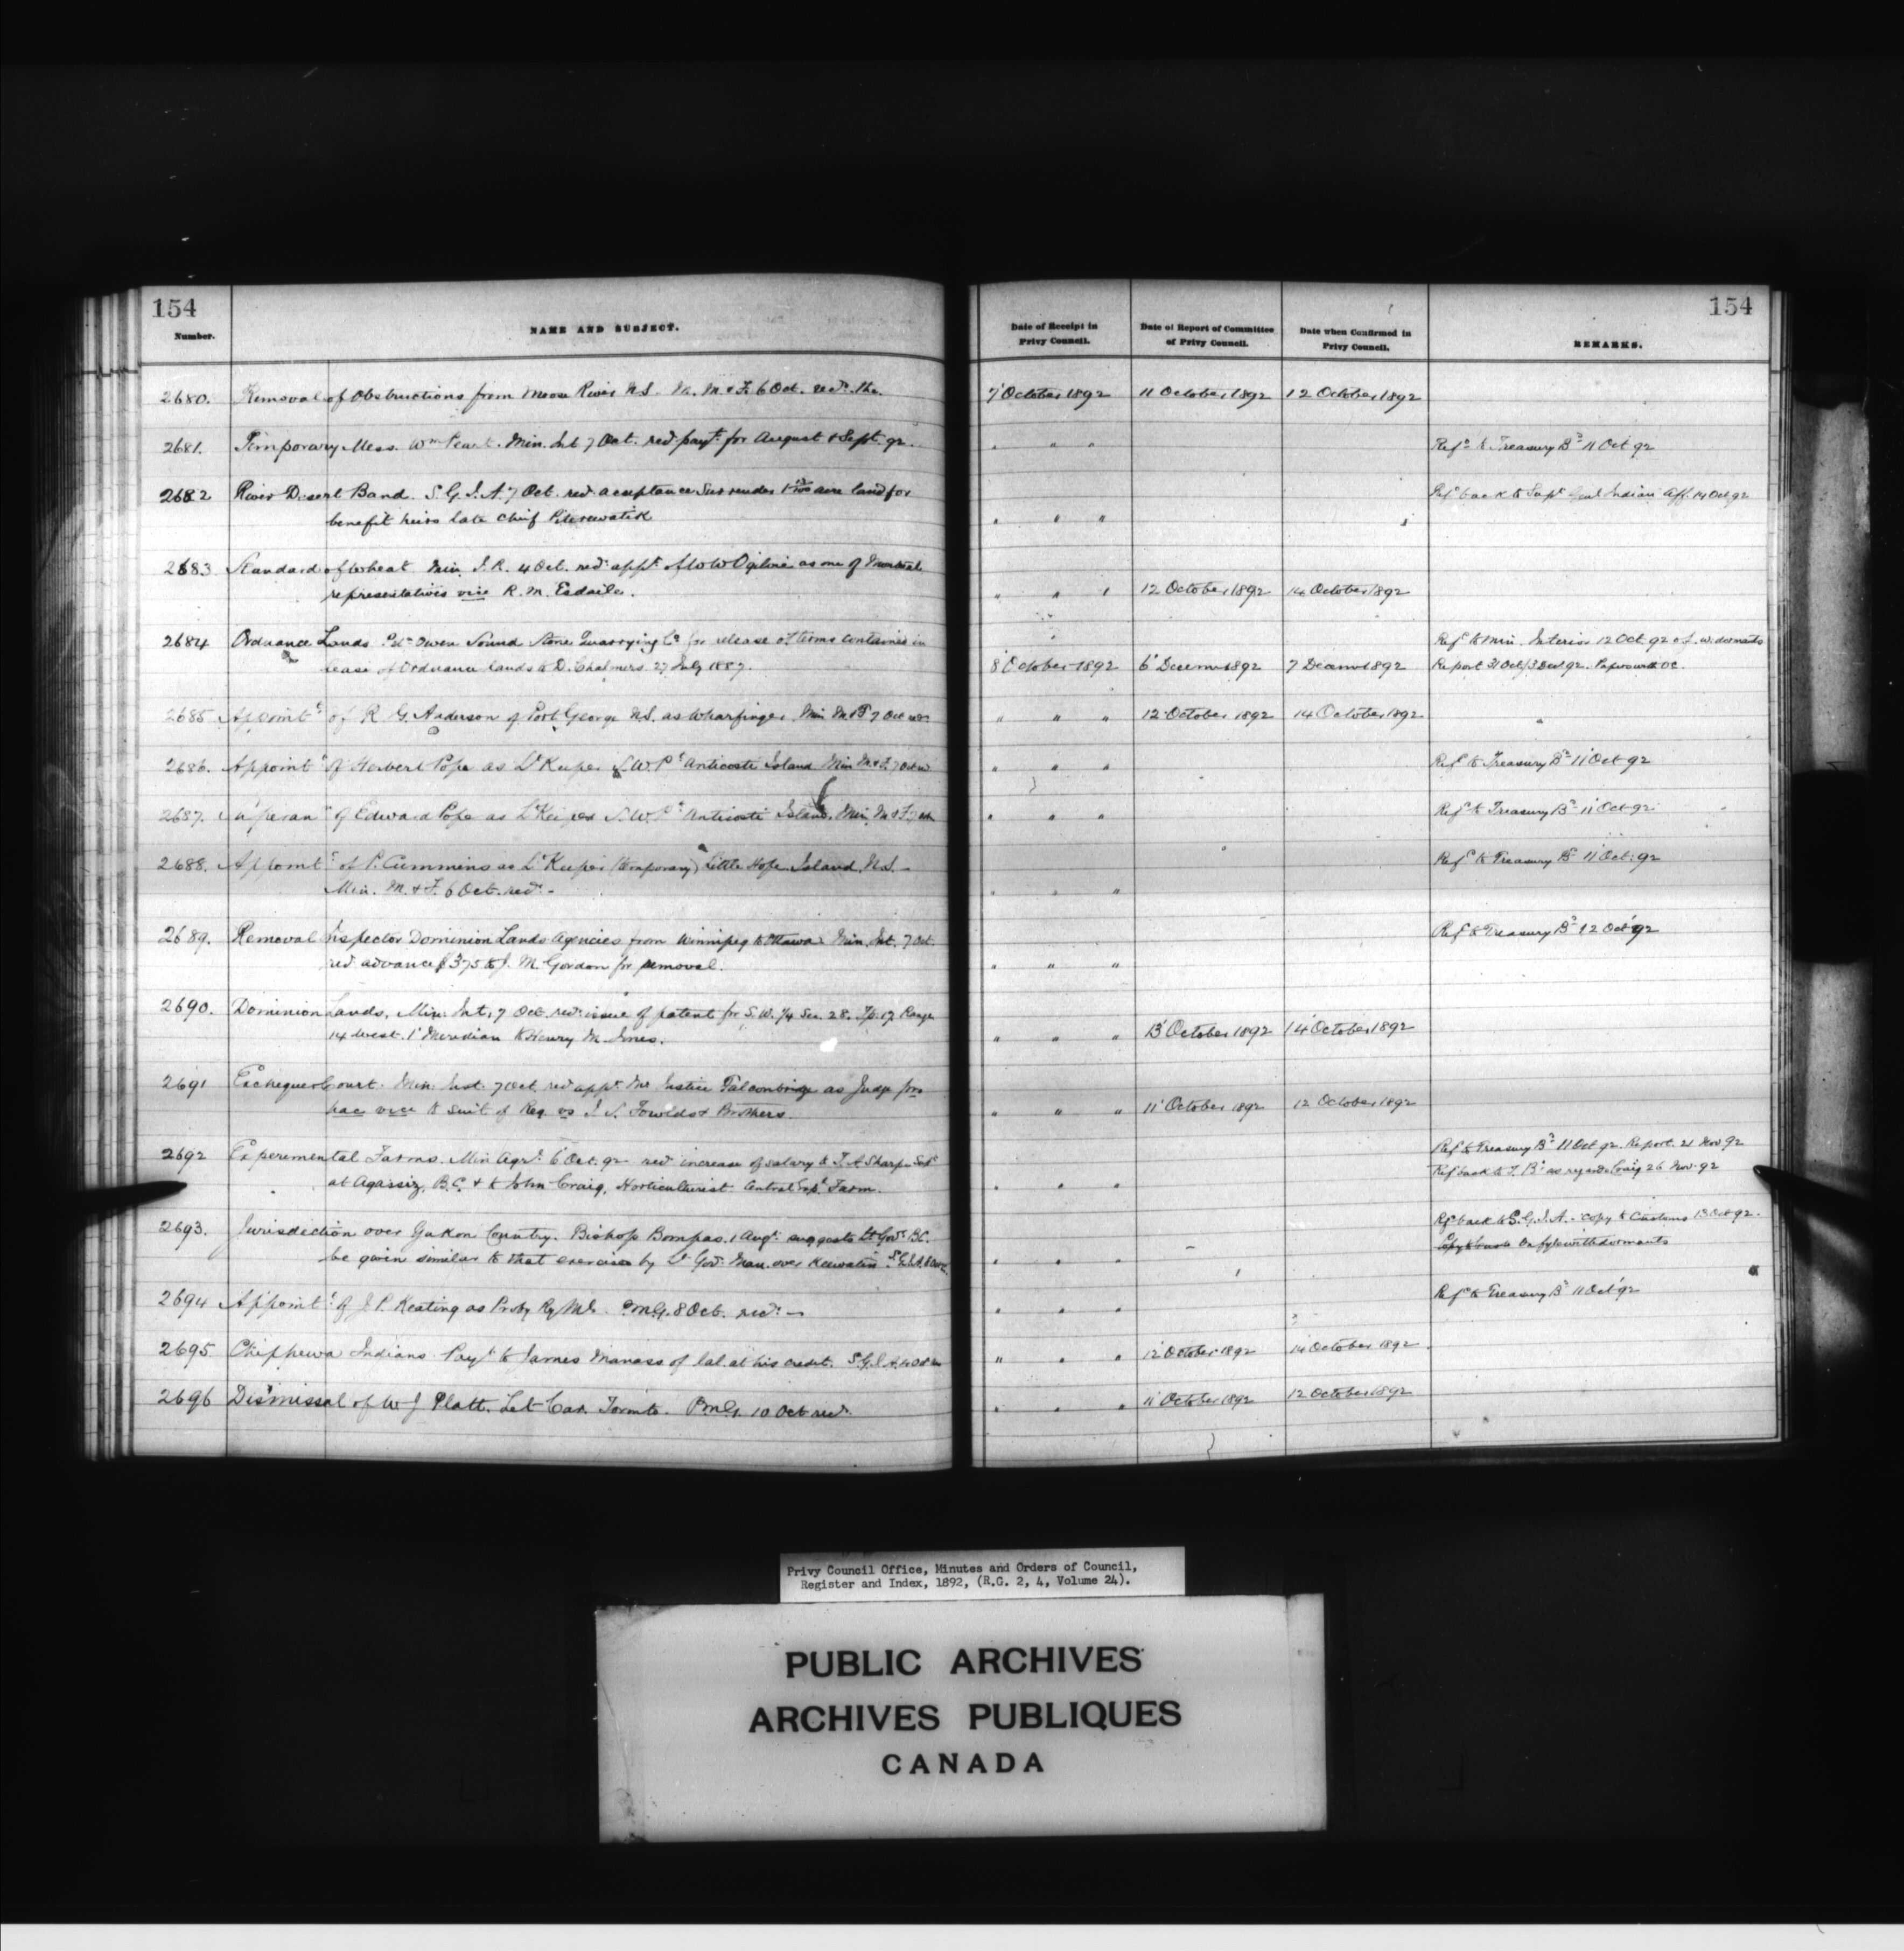 154
Number.
NAME AND SUBJECT.
2680. Removal of Obstructions from Moose River N.S. M. M. & F. 6 Oct. recds. the.
2681. Temporary Mess. Wm Peart. Min. Int 7 Oct. red. payt. for August & Sept. 92.
2682 River Desert Band. S. G. I. A. 7 Oct. red. acceptance Surrender acre land for
benefit heirs late Chief
2683 Standard of Wheat Min. I. R. 4 Oct. red. appt. of W W Ogilvie as one of Montreal
representatives vice R. M. Esdaile.
2684 Ordnance Lands. Owen Sound Stone Quarrying Co. for release of terms contained in
lease of Ordnance lands to D. Chalmers. 27 July 1887.
2685 Appointt. of R. G. Anderson of Port George N.S. as Wharfinger. Min M & F 7 Oct
2686. Appointt. of Herbert Pope as Lt Keeper S. W. Pt. Anticosti Island Min M. & F. 7 Oct
2687. Superann of Edward Pope as Lt Keeper S. W. Pt. Anticosti Island. Min. M & F. 7
2688. Appomt. of P. Cummins as Lt Keeper (temporary) Little Hope Island, N.S. –
Min. M. & F. 6 Oct. red. –
2689. Removal Inspector Dominion Lands Agencies from Winnipeg to Ottawa. Min. Int. 7 Oct.
red. advance $375 to J. M. Gordon for removal.
2690. Dominion Lands. Min. Int. 7 Oct. red. issue of patent for S. W. 1/4 Sec. 28. Tp. 17 Range
14 West. 1 Meridian to Henry M. Jones.
2691 Exchequer Court. Min. Just. 7 Oct. red. appt. Mr Justice Falconbridge as Judge pro
hac vice to suit of Reg. vs J. S. Fowlds & Brothers.
2692 Experemental Farms. Min Agr. 6 Oct. 92 red increase of salary to T. A Sharpe Supt
at Agassiz, B.C. & to John Craig, Horticulturist. Central Exp. Farm.
2693. Jurisdiction over Yukon Country. Bishop Bompas. 1 Augt. suggests Lt Govr. B.C.
be given similar to that exercised by Lt Govr. Man. over Keewatin.
2694 Appoint. of J. P. Keating as Proby Ry M.C. P.M.G. 8 Oct. red. –
2695. Chippewa Indians. Payt. to James Manass of bal. at his credit. S. G. I. A. 4 Oct
2696 Dismissal of W J Platt. Let Car. Toronto. P.M.G. 10 Oct red.
154
Date of Receipt in
Privy Council.
Date of Report of Committee
of Privy Council.
Date when Confirmed in
Privy Council.
REMARKS.
7 October 1892 11 October 1892 12 October 1892
" " " Refd. to Treasury Bd. 11 Oct 92
Refd back to Supt Genl Indian Aff. 14 Oct 92
" " "
" " " 12 October 1892 14 October 1892
Refd to Min. Interior 12 Oct 92
8 October 1892 6 Decem 1892 7 Decem 1892 Report 31 Oct/3 Decr 92.
" " " 12 October 1892 14 October 1892
" " " Refd to Treasury Bd 11 Oct 92
" " " Refd to Treasury Bd 11 Oct 92
Refd to Treasury Bd 11 Oct. 92
" " "
Refd to Treasury Bd 12 Oct 92
" " "
" " " 13 October 1892 14 October 1892
" " " 11 October 1892 12 October 1892
Refd to Treasury Bd 11 Oct 92. Report 21 Nov 92
Ref back to T. Bd as regards Craig 26 Nov. 92
" " "
Ref back to S. G. I. A. – Copy to Customs 13 Oct 92.
On fyle with dormants
" " "
" " " Refd to Treasury Bd 11 Oct 92
" " " 12 October 1892 14 October 1892
" " " 11 October 1892 12 October 1892
Privy Council Office, Minutes and Orders of Council,
Register and Index, 1892, (R.G. 2, 4, Volume 24).
PUBLIC ARCHIVES
ARCHIVES PUBLIQUES
CANADA